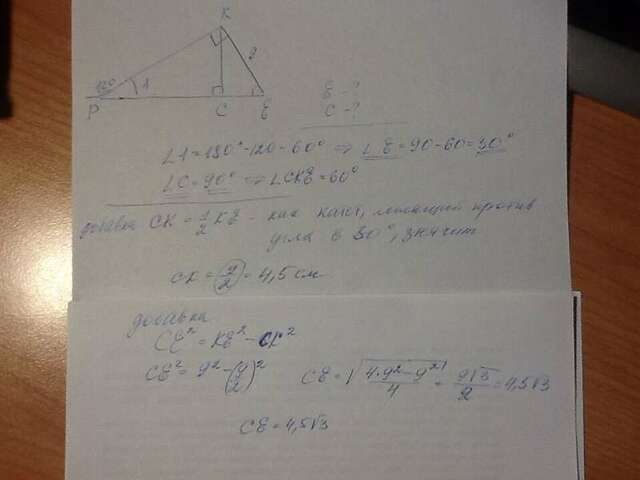 K
120
1
9
P
C
E
E - ?
C - ?
∠1 = 180° - 120 - 60° ⇒ ∠E = 90 - 60 = 30°
∠C = 90° ⇒ ∠CKE = 60°
добавка CK = 1/2 KE - как катет, лежащий против
угла в 30°, значит
CK = 9/2 = 4,5 см
добавка
CE² = KE² - CK²
CE² = 9² - (9/2)² CE = √(4·9² - 9²)/4 = 9√3/2 = 4,5√3
CE = 4,5√3